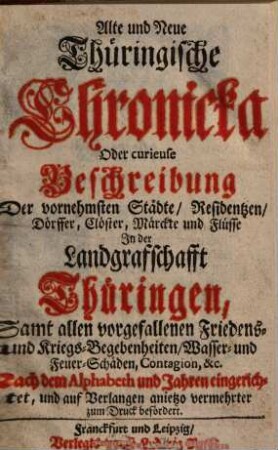 Alte und Neue
Thüringische
Chronicka
Oder curieuse
Beschreibung
Der vornehmsten Städte/ Residentzen/
Dörffer, Clöster, Märckte und Flüsse
In der
Landgrafschafft
Thüringen,
Samt allen vorgefallenen Friedens-
und Kriegs-Begebenheiten/ Wasser- und
Feuer-Schäden, Contagion, &c.
Nach dem Alphabeth und Jahren eingerich-
tet, und auf Verlangen anietzo vermehrter
zum Druck befördert.
Franckfurt und Leipzig/